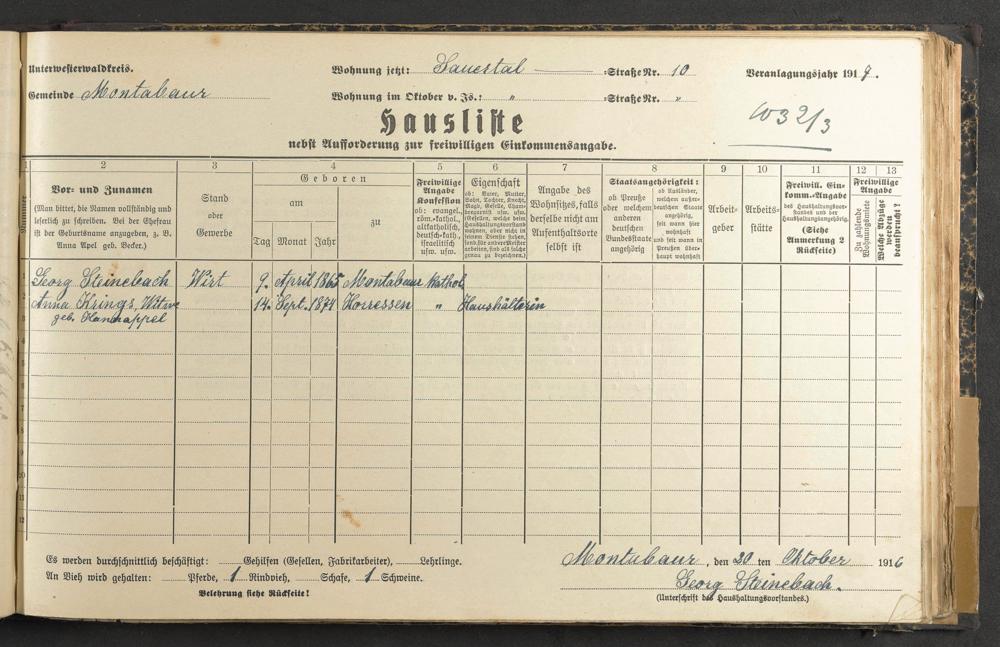 Unterwesterwaldkreis.
Wohnung jetzt: Sauertal =Straße Nr. 10
Veranlagungsjahr 1917.
Gemeinde Montabaur
Wohnung im Oktober v. Js.: " =Straße Nr. "
W 32/3
Hausliste
nebst Aufforderung zur freiwilligen Einkommensangabe.
1 2 3 4 5 6 7 8 9 10 11 12 13
Nummer
Vor- und Zunamen
(Man bittet, die Namen vollständig und
leserlich zu schreiben. Bei der Ehefrau
ist der Geburtsname anzugeben, z. B.
Anna Apel geb. Becker.)
Stand
oder
Gewerbe
Geboren
am
zu
Tag Monat Jahr
Freiwillige
Angabe
Konfession
ob: evangel.,
röm.-kathol.,
altkatholisch,
deutsch-kath.,
israelitisch
usw. usw.
Eigenschaft
ob: Vater, Mutter,
Sohn, Tochter, Knecht,
Magd, Geselle, Cham-
bregarnist usw. usw.
(Gesellen, welche beim
Haushaltungsvorstand
wohnen, aber nicht in
seinem Dienste stehen,
sondern für andere Meister
arbeiten, sind als solche
genau zu bezeichnen.)
Angabe des
Wohnsitzes, falls
derselbe nicht am
Aufenthaltsorte
selbst ist
Staatsangehörigkeit:
ob Preuße
oder welchem
anderen
deutschen
Bundesstaate
angehörig
ob Ausländer,
welchem außer-
deutschen Staate
angehörig,
seit wann hier
wohnhaft
und seit wann in
Preußen über-
haupt wohnhaft
Arbeit-
geber
Arbeits-
stätte
Freiwill. Ein-
komm.-Angabe
des Haushaltungsvor-
standes und der
Haushaltungsangehörig.
(Siehe
Anmerkung 2
Rückseite)
Freiwillige
Angabe
Zu zahlende
Wohnungsmiete
Welche Abzüge
werden
beansprucht?
1 Georg Steinebach Wirt 9. April 1865 Montabaur Kathol
2 Anna Krings, Wttwe 14. Sept. 1874 Horressen " Haushälterin
3 geb. Hannappel
4
5
6
7
8
9
10
11
12
Es werden durchschnittlich beschäftigt: Gehilfen (Gesellen, Fabrikarbeiter), Lehrlinge.
An Vieh wird gehalten: Pferde, 1 Rindvieh, Schafe, 1 Schweine.
Belehrung siehe Rückseite!
Montabaur, den 20 ten Oktober 1916
Georg Steinebach.
(Unterschrift des Haushaltungsvorstandes.)